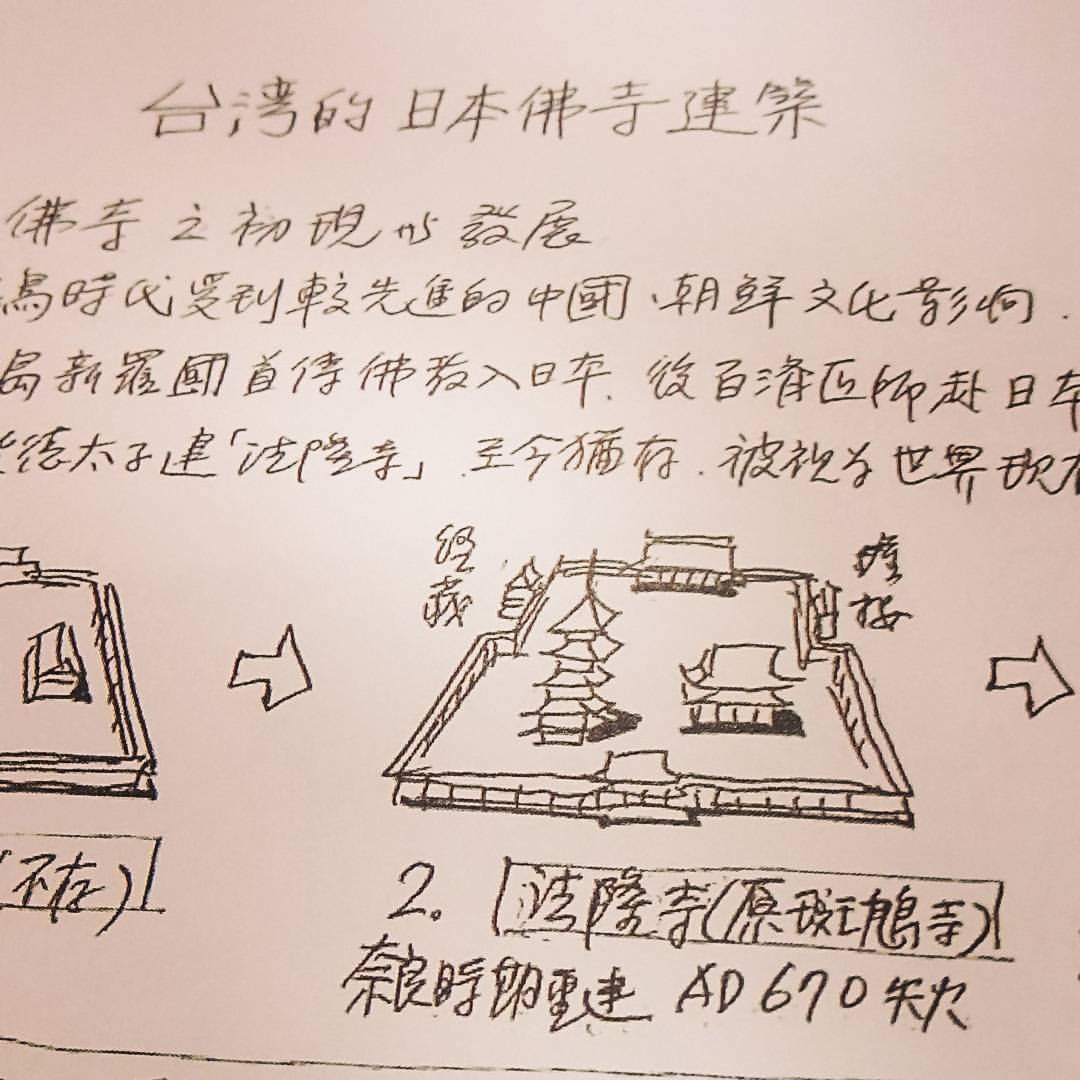 台湾的日本佛寺建築
佛寺之初現与發展
鳥時代受到較先進的中國、朝鮮文化影响.
島新羅國首傳佛教入日本. 後百濟匠師赴日本
德太子建「法隆寺」. 至今猶存. 被視為世界現存
経藏
鐘楼
(不存)
2. 法隆寺(原斑鳩寺)
奈良時期重建 AD 670 失火